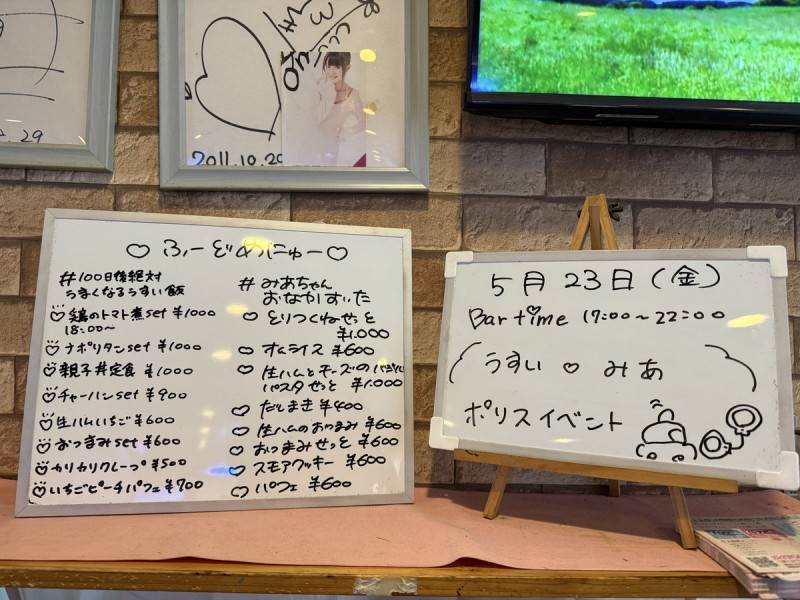 2011.10.29
29
♡ ふーどめにゅー ♡
#100日後絶対
うまくなるうすい飯
♡ 鶏のトマト煮set ¥1000
18:00〜
♡ ナポリタンset ¥1000
♡ 親子丼定食 ¥1000
♡ チャーハンset ¥900
♡ 生ハムいちご ¥600
♡ おつまみset ¥600
♡ カリカリクレープ ¥500
♡ いちごピーチパフェ ¥700
# みあちゃん
おなかすいた
♡ とりつくねせっと
¥1.000
♡ オムライス ¥600
♡ 生ハムとチーズのバジル
パスタせっと ¥1.000
♡ だしまき ¥400
♡ 生ハムのおつまみ ¥600
♡ おつまみせっと ¥600
♡ スモアクッキー ¥600
♡ パフェ ¥600
5月23日(金)
Bar time 17:00〜22:00
うすい ♡ みあ
ポリスイベント